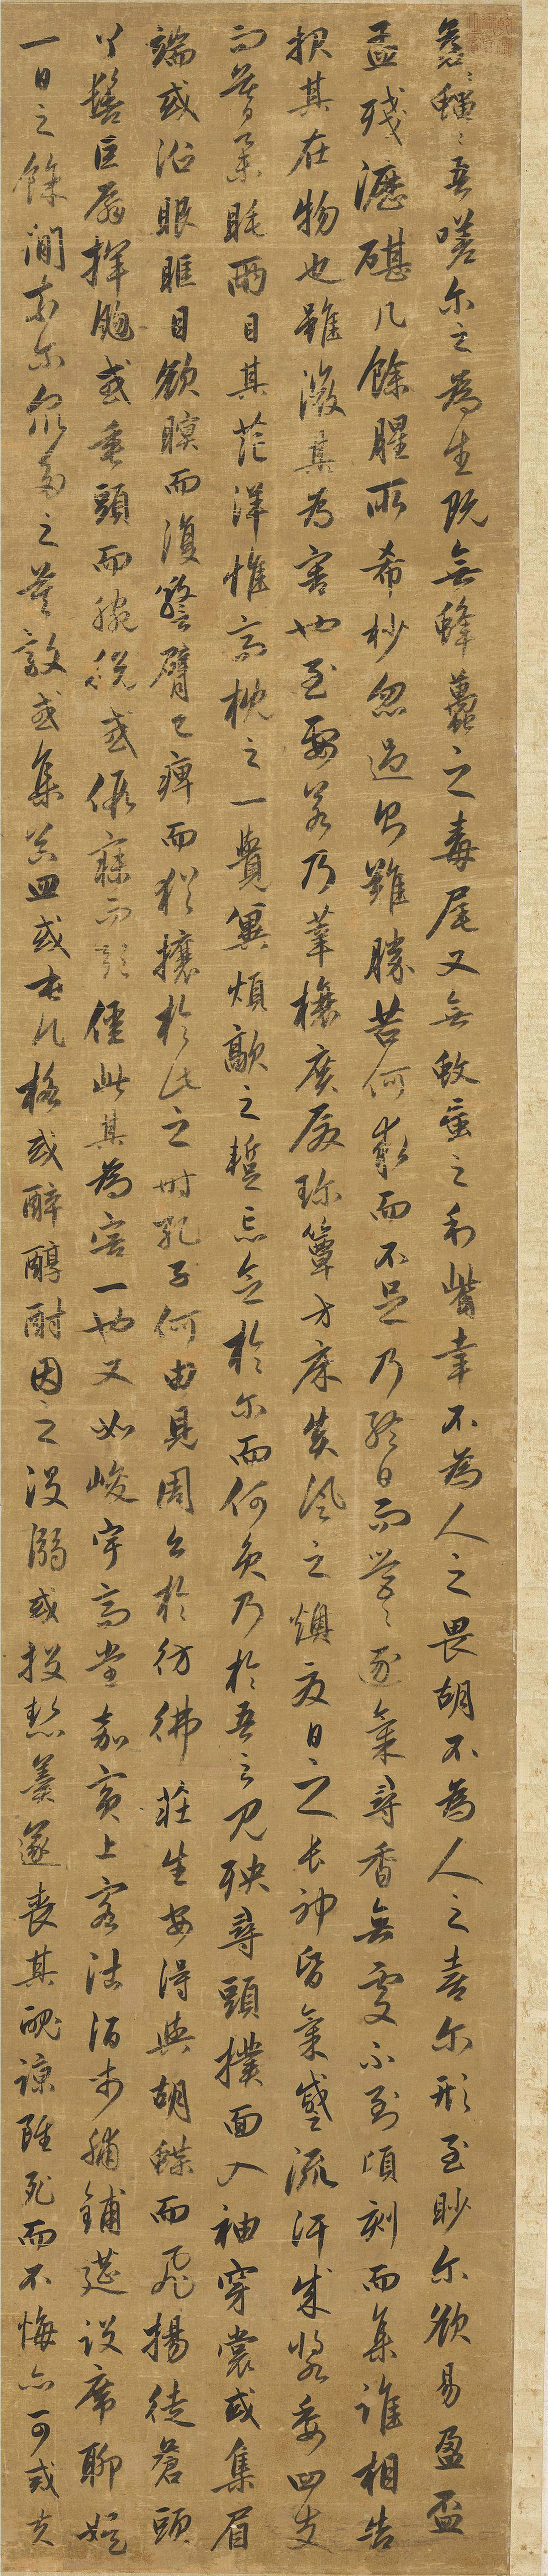 蒼〻蠅〻吾嗟尔之為生既無蜂蠆之毒尾又無蚊䖟之利觜幸不為人之畏胡不為人之喜尔形至眇尔欲易盈盃
盂殘瀝碪几餘腥所希杪忽過則難勝苦何求而不足乃終日而營〻逐氣尋香無處不到頃刻而集誰相告
報其在物也雖微其為害也至要若乃華榱廣廈珍簟方床炎風之燠夏日之長神昏氣蹙流汗成漿委四支
而莫舉眊兩目其茫洋惟高枕之一覺冀煩歊之蹔忘念於尔而何負乃於吾之見殃尋頭撲面入袖穿裳或集眉
端或沿眼眶目欲瞑而復警臂已痺而猶攘於此之時孔子何由見周公於彷彿莊生安得與胡蝶而飛揚徒蒼頭
丫髻巨扇揮颺或垂頭而腕脫或假寐而顛僵此其為害一也又如峻宇高堂嘉賓上客沽酒市脯鋪筵設席聊娛
一日之餘閒奈尔眾多之莫敵或集器皿或屯几格或醉醇酎因之沒溺或投熱羹遂喪其魄諒雖死而不悔亦可戒夫